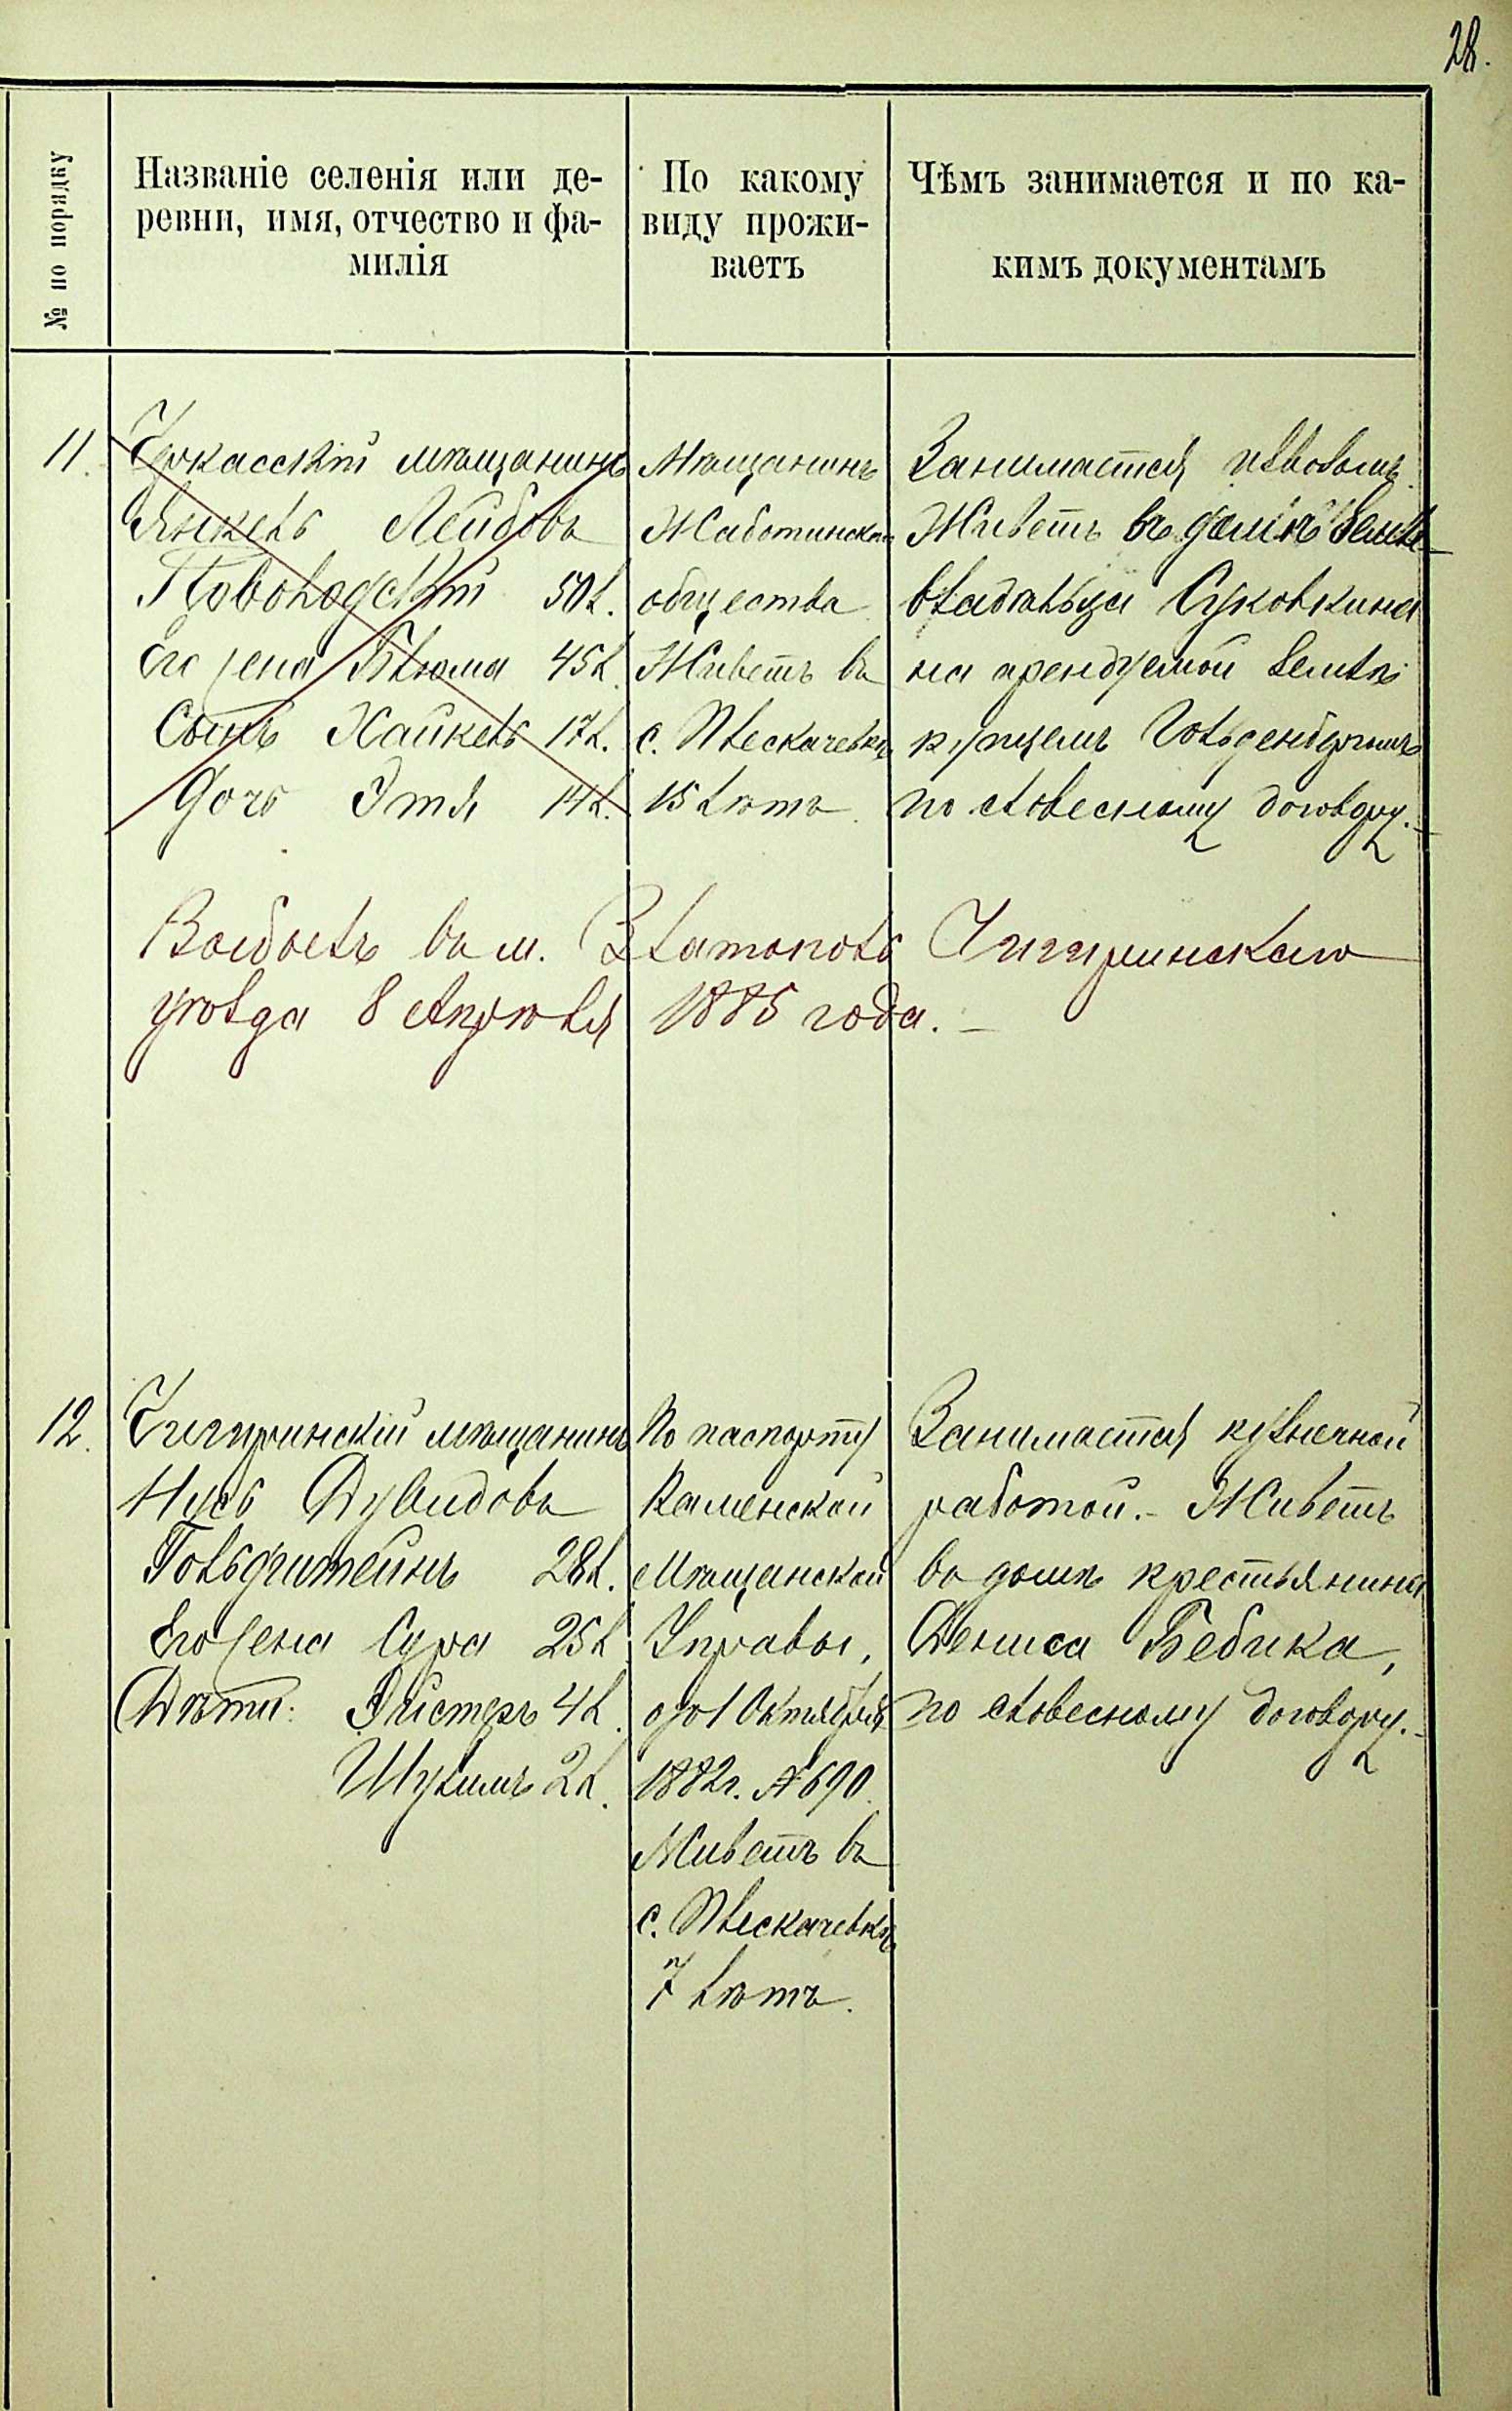 28.
№ по порядку
Названіе селенія или де-
ревни, имя, отчество и фа-
милія
По какому
виду прожи-
ваетъ
Чѣмъ занимается и по ка-
кимъ документамъ
11.
Черкасскій мѣщанинъ
Янкель Лейбовъ
50 л.
Его жена Блюма 45 л.
Сынъ Хайкель 17 л.
Дочь Этя 14 л.
Мѣщанинъ
Жаботинскаго
общества
Живетъ въ
с. Плескачевкѣ
15 лѣтъ.
Занимается
Живетъ въ домѣ земле-
владѣльца Суковкина
на арендуемой землѣ
купцемъ Гольденбергомъ
по словесному договору.-
Выбылъ въ м. Златополь Чигиринскаго
уѣзда 8 Апрѣля 1885 года. -
12.
Чигиринскій мѣщанинъ
Нусь Дувидовъ
Гольдштейнъ 28 л.
Его жена Сура 25 л.
Дѣти: Эйстеръ 4 л.
Шулимъ 2 л.
По паспорту
Каменской
Мѣщанской
Управы,
до 1 Октября
1882 г. № 690.
Живетъ въ
с. Плескачевкѣ
7 лѣтъ.
Занимается кузнечной
работой. - Живетъ
въ домѣ крестьянина
Дениса Бебика,
по словесному договору. -